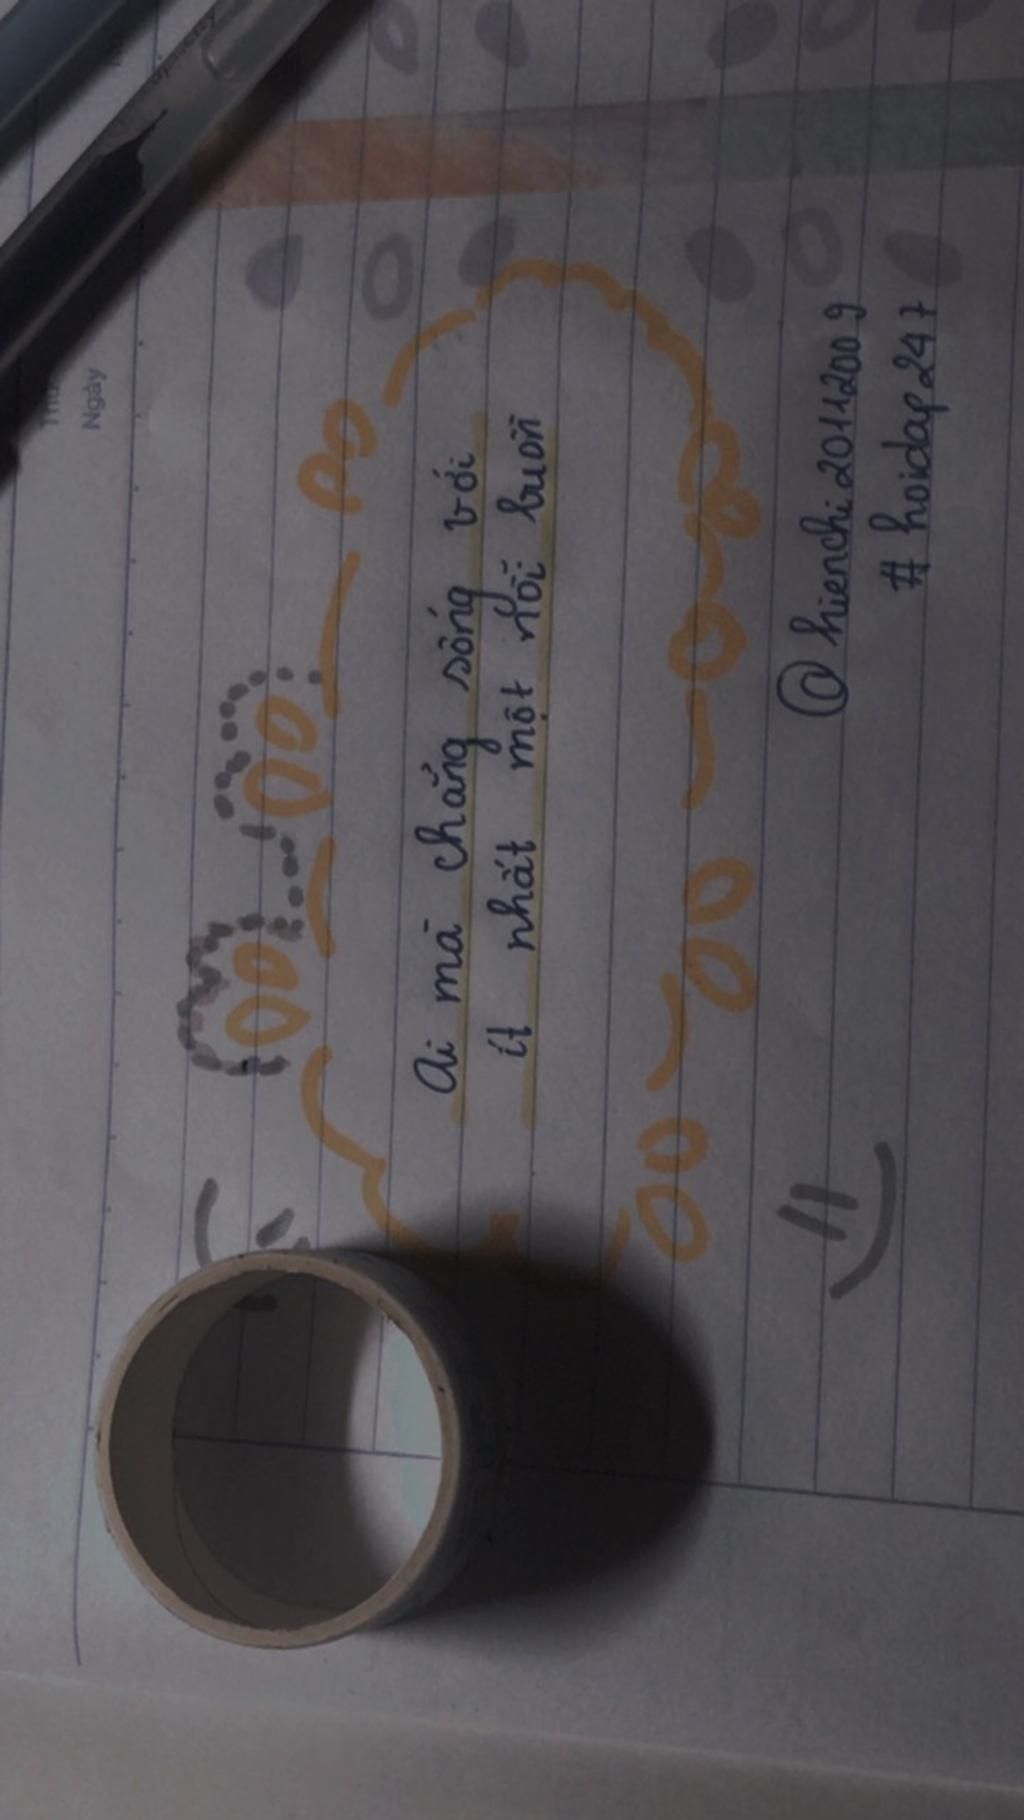 Ngày
Ai mà chẳng sống với
ít nhất một nỗi buồn
@hienchi20112009
#hoidap247